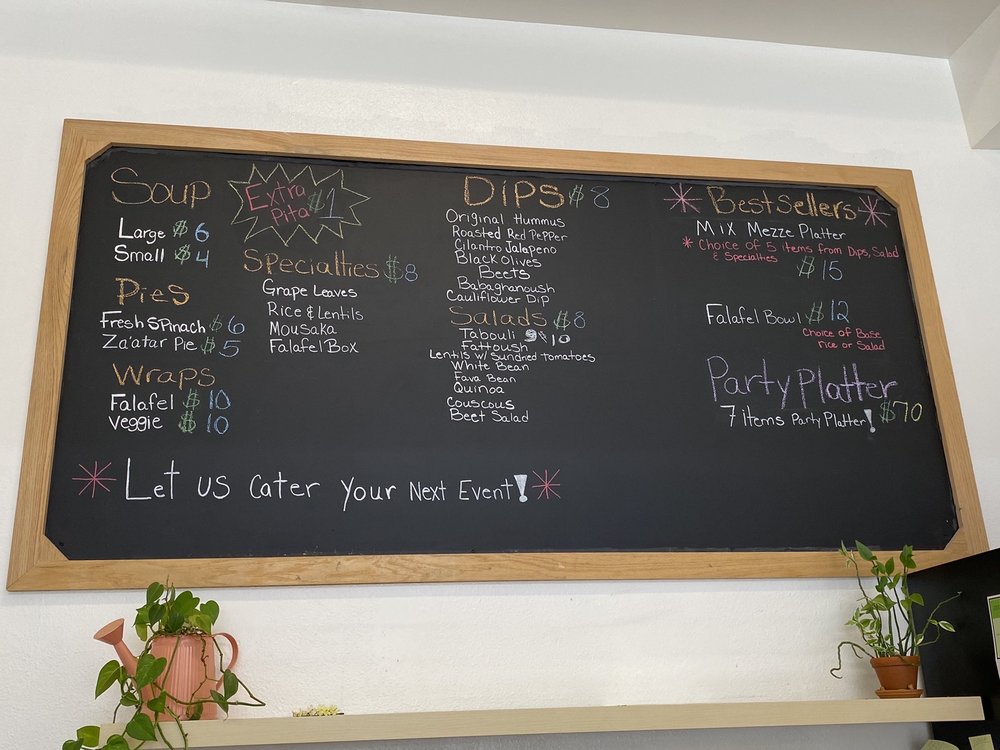 Soup
Large $6
Small $4
Pies
Fresh Spinach $6
Za'atar Pie $5
Wraps
Falafel $10
Veggie $10
Extra
Pita $1
Specialties $8
Grape Leaves
Rice & Lentils
Mousaka
Falafel Box
Dips $8
Original Hummus
Roasted Red Pepper
Cilantro Jalapeno
Black Olives
Beets
Babaghanoush
Cauliflower Dip
Salads $8
Tabouli $10
Fattoush
Lentils w/ Sundried Tomatoes
White Bean
Fava Bean
Quinoa
Couscous
Beet Salad
* Best Sellers *
Mix Mezze Platter
* Choice of 5 items from Dips, Salad
& Specialties
$15
Falafel Bowl $12
Choice of Base
rice or Salad
Party Platter
7 Items Party Platter! $70
* Let us Cater Your Next Event! *